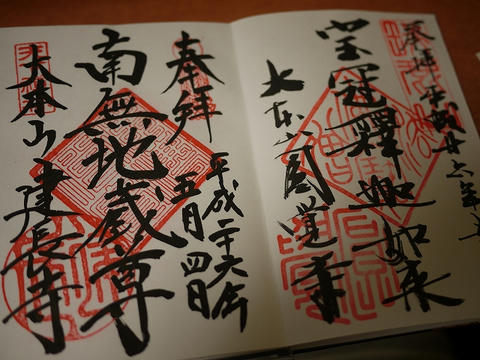 奉拝 平成廿六年五
宝冠釋迦如来
大本山圓覚寺
奉拝
平成二十六年
五月四日
南無地蔵尊
大本山建長寺